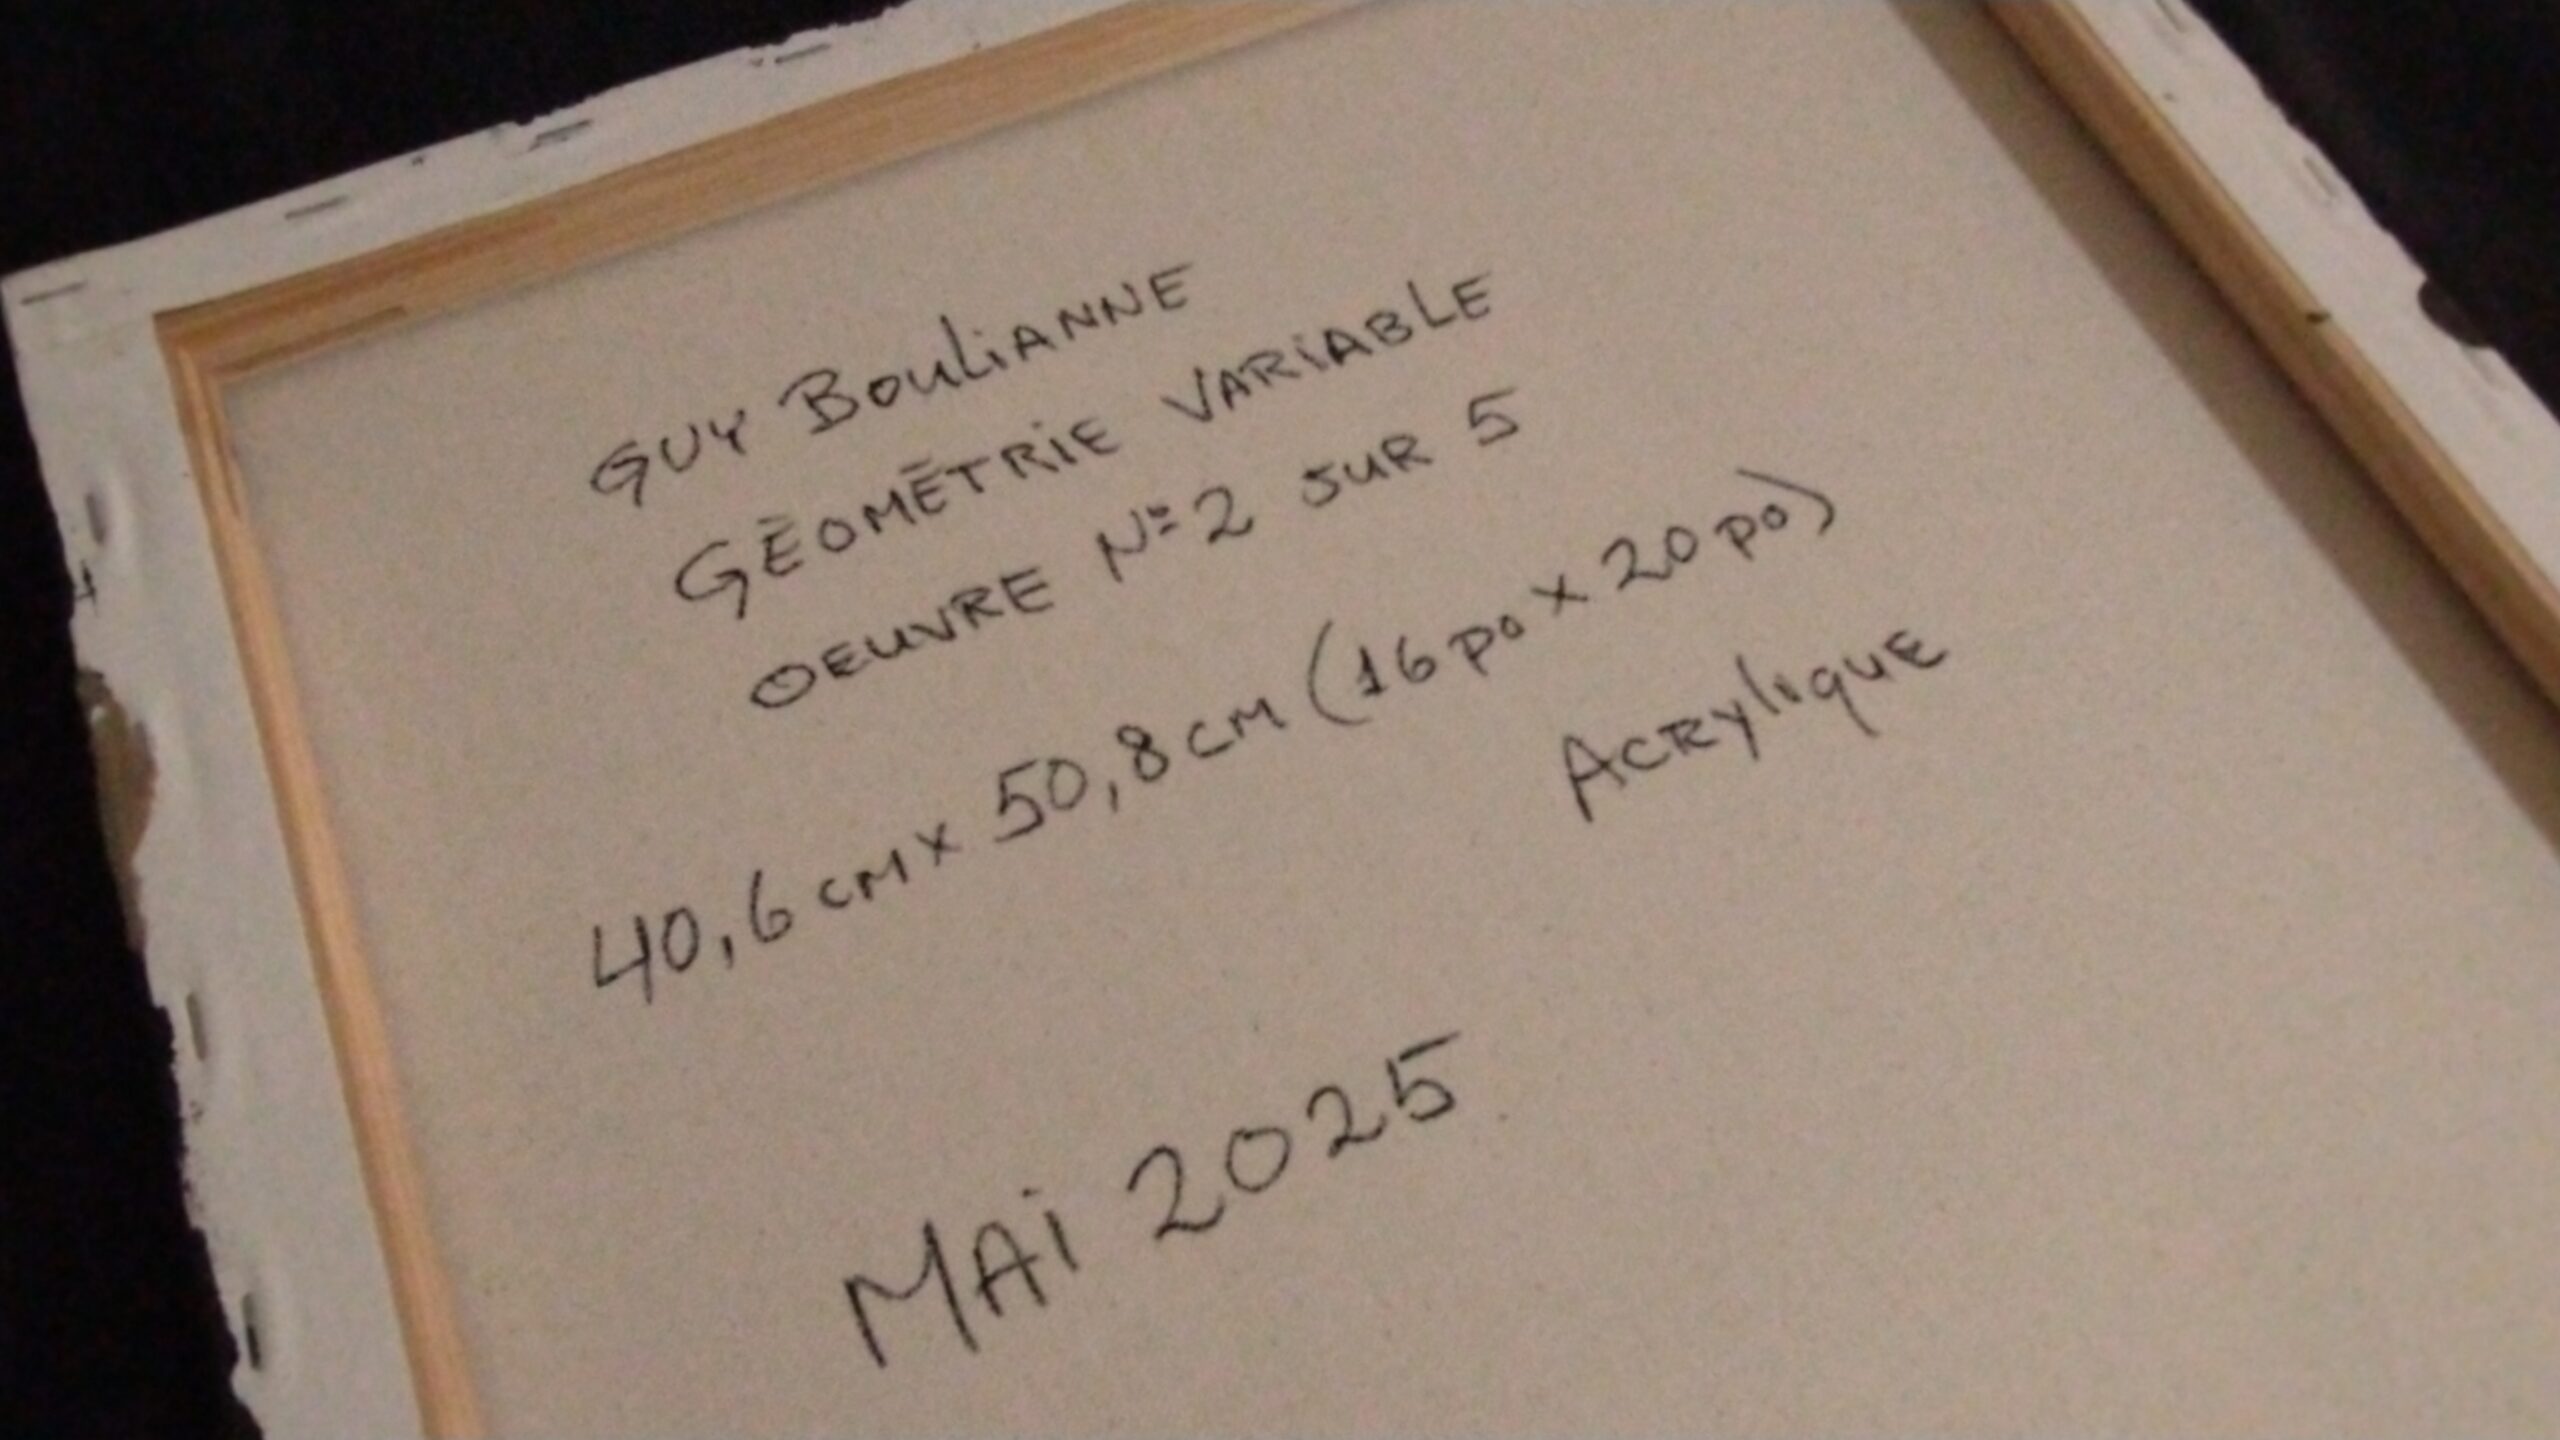 GUY BOULIANNE
GÉOMÉTRIE VARIABLE
OEUVRE Nº 2 SUR 5
40,6 CM x 50,8 CM (16 PO x 20 PO)
ACRYLIQUE
MAI 2025